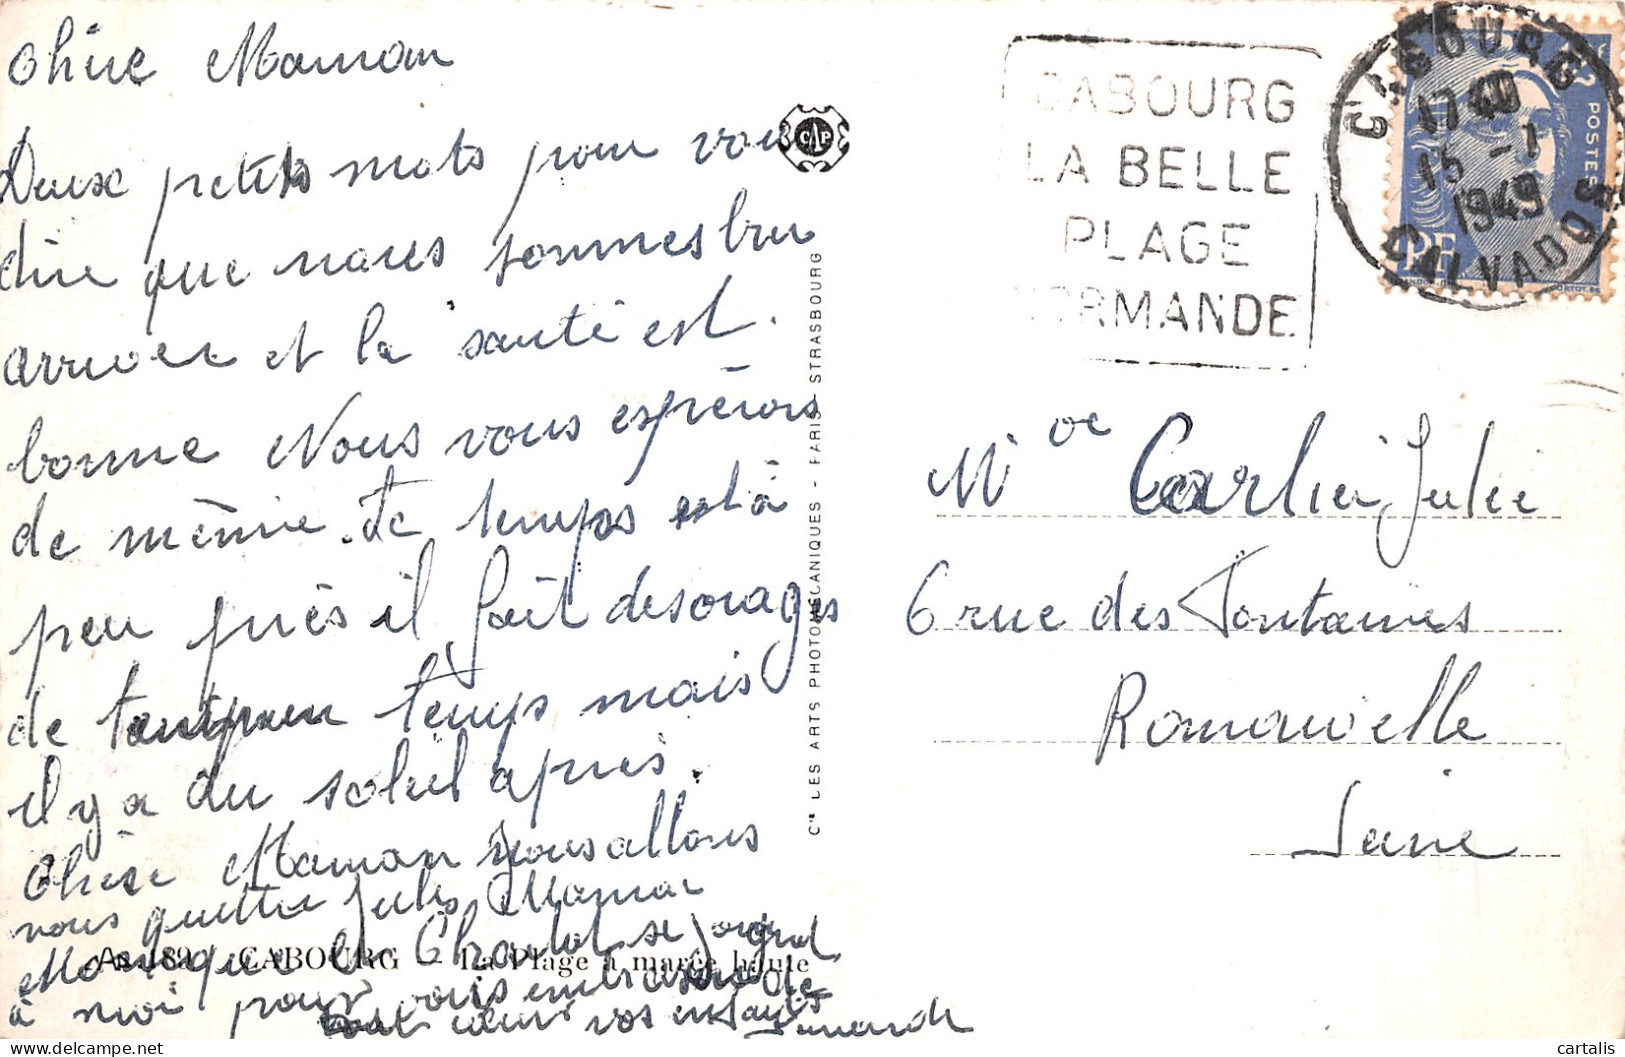 Chère Maman
Deux petits mots pour vous
dire que nous sommes bien
arriver et la santé est.
bonne Nous vous espérons
de même. Le temps est à
peu près il fait des orages
de temps mais
il y a du soleil après.
Chère Maman nous allons
vous quitter Jules Maman
Monique et se joignent
à moi pour vous embrasser de
tout cœur vos enfants
Fernande
As 189 - CABOURG - La Plage à marée haute
CAP
Cie LES ARTS PHOTOMÉCANIQUES - PARIS - STRASBOURG
CABOURG
LA BELLE
PLAGE
NORMANDE
CABOURG
17 40
15 -1
1949
CALVADOS
POSTES
RF
Mme Carlier Julie
6 rue des Fontaines
Romainville
Seine
cartalis